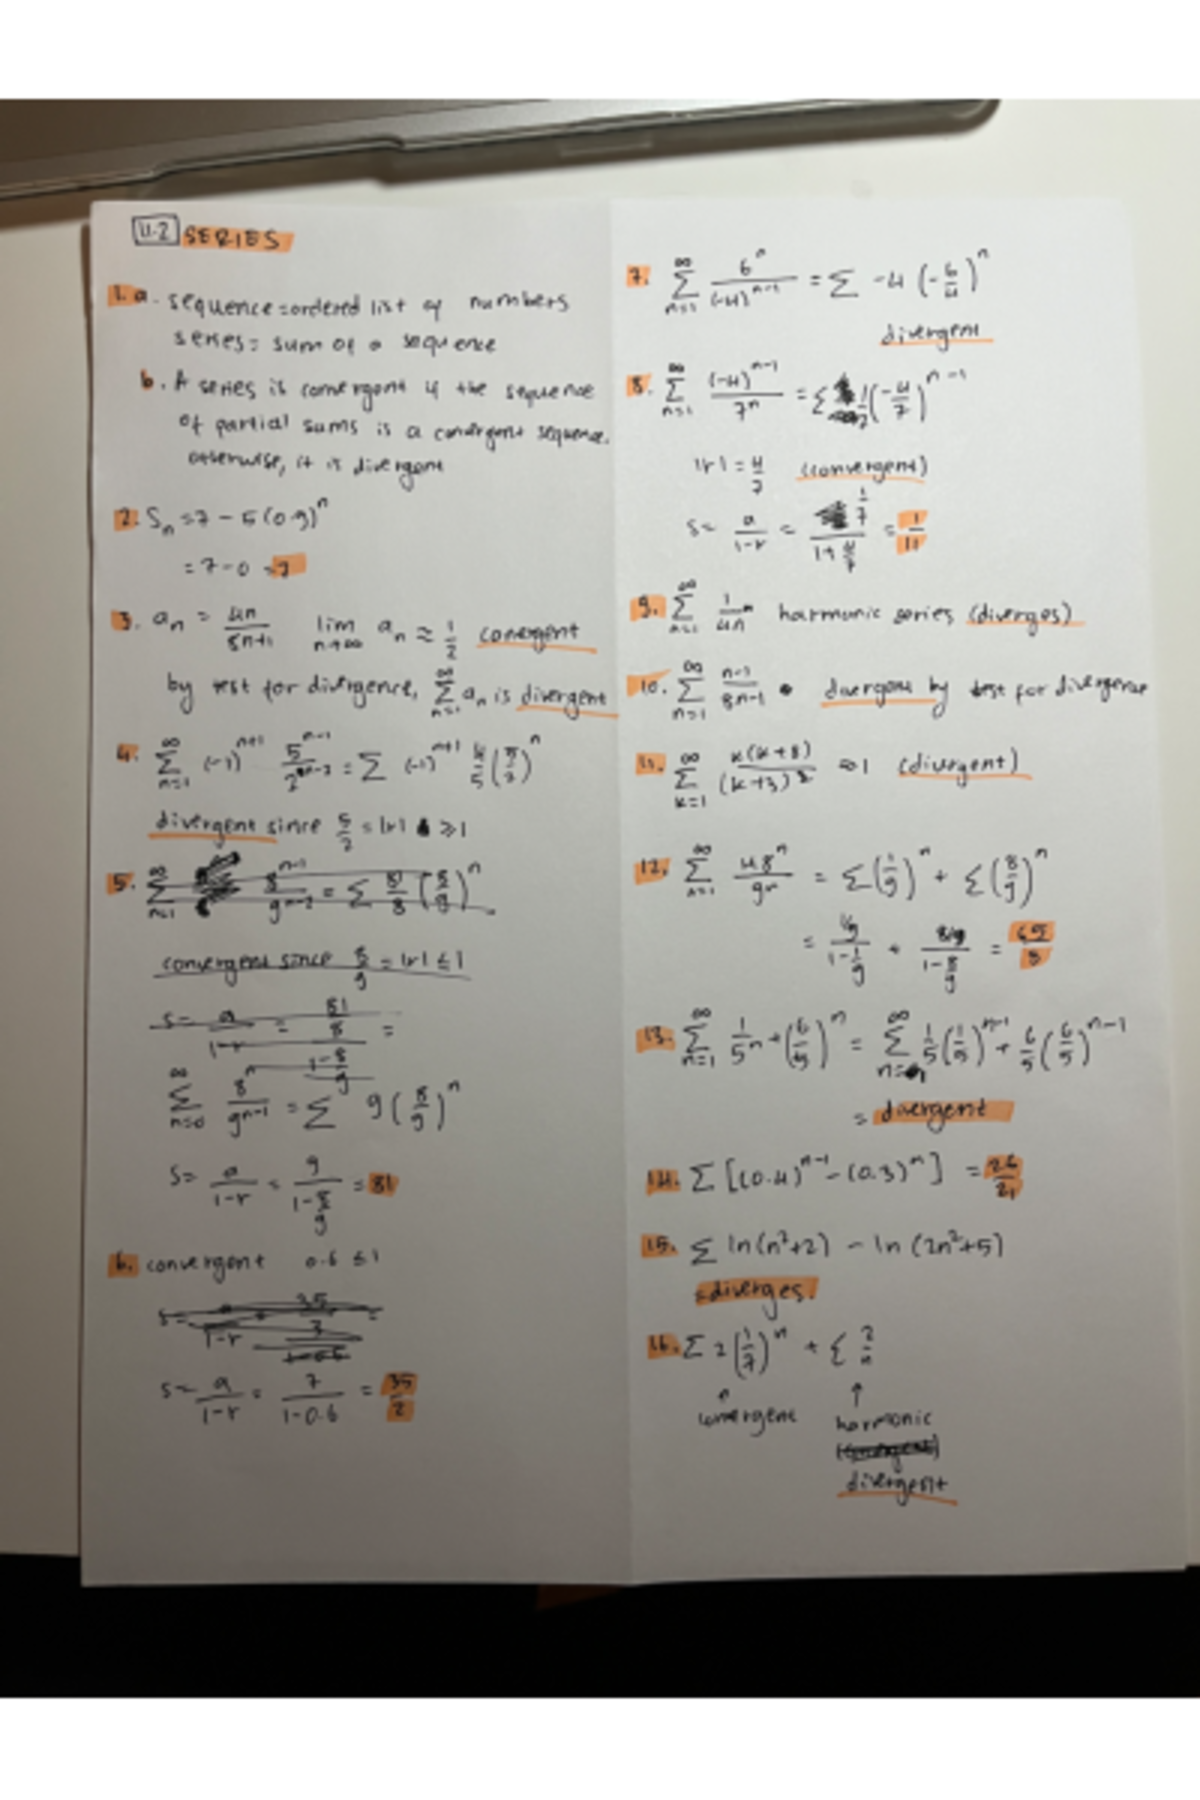 11.2 SERIES
1. a. sequence = ordered list of numbers
series = sum of a sequence
b. A series is convergent if the sequence
of partial sums is a convergent sequence.
otherwise, it is divergent
2. Sₙ = 7 - 5(0.9)ⁿ
= 7 - 0 = 7
3. aₙ = 4n/(8n+1) lim n→∞ aₙ ≈ 1/2 convergent
by test for divergence, ∑ n=1 ∞ aₙ is divergent
4. ∑ n=1 ∞ (-1)ⁿ⁺¹
divergent since 5/2 = |r| ≥ 1
5.
convergent since 8/9 = |r| ≤ 1
S = a/(1-r) =
∑ n=0 ∞ 8ⁿ/9ⁿ⁻¹ = ∑ 9(8/9)ⁿ
S = a/(1-r) = 9/(1-8/9) = 81
6. convergent 0.6 ≤ 1
S = a/(1-r) = 7/(1-0.6) = 35/2
7. ∑ n=1 ∞ 6ⁿ/(-4)ⁿ⁻¹ = ∑ -4(-6/4)ⁿ
divergent
8. ∑ n=1 ∞ (-4)ⁿ⁻¹/7ⁿ = ∑ 1/7(-4/7)ⁿ⁻¹
|r| = 4/7 (convergent)
S = a/(1-r) = (1/7)/(1+4/7) = 1/11
9. ∑ n=1 ∞ 1/4n harmonic series (diverges)
10. ∑ n=1 ∞ (n-1)/(8n-1) divergent by test for divergence
11. ∑ k=1 ∞ k(k+8)/(k+3)² ≈1 (divergent)
12. ∑ n=1 ∞ = ∑(1/9)ⁿ + ∑(8/9)ⁿ
= (1/9)/(1-1/9) + (8/9)/(1-8/9) = 65/8
13. ∑ n=1 ∞ 1/5ⁿ + (6/5)ⁿ = ∑ n=1 ∞ 1/5(1/5)ⁿ⁻¹ + 6/5(6/5)ⁿ⁻¹
= divergent
14. ∑ [(0.4)ⁿ⁻¹ - (0.3)ⁿ] = 26/21
15. ∑ ln(n²+2) - ln(2n²+5)
= diverges.
16. ∑ 2(1/7)ⁿ + ∑ 2/n
↑ ↑
convergent harmonic
divergent